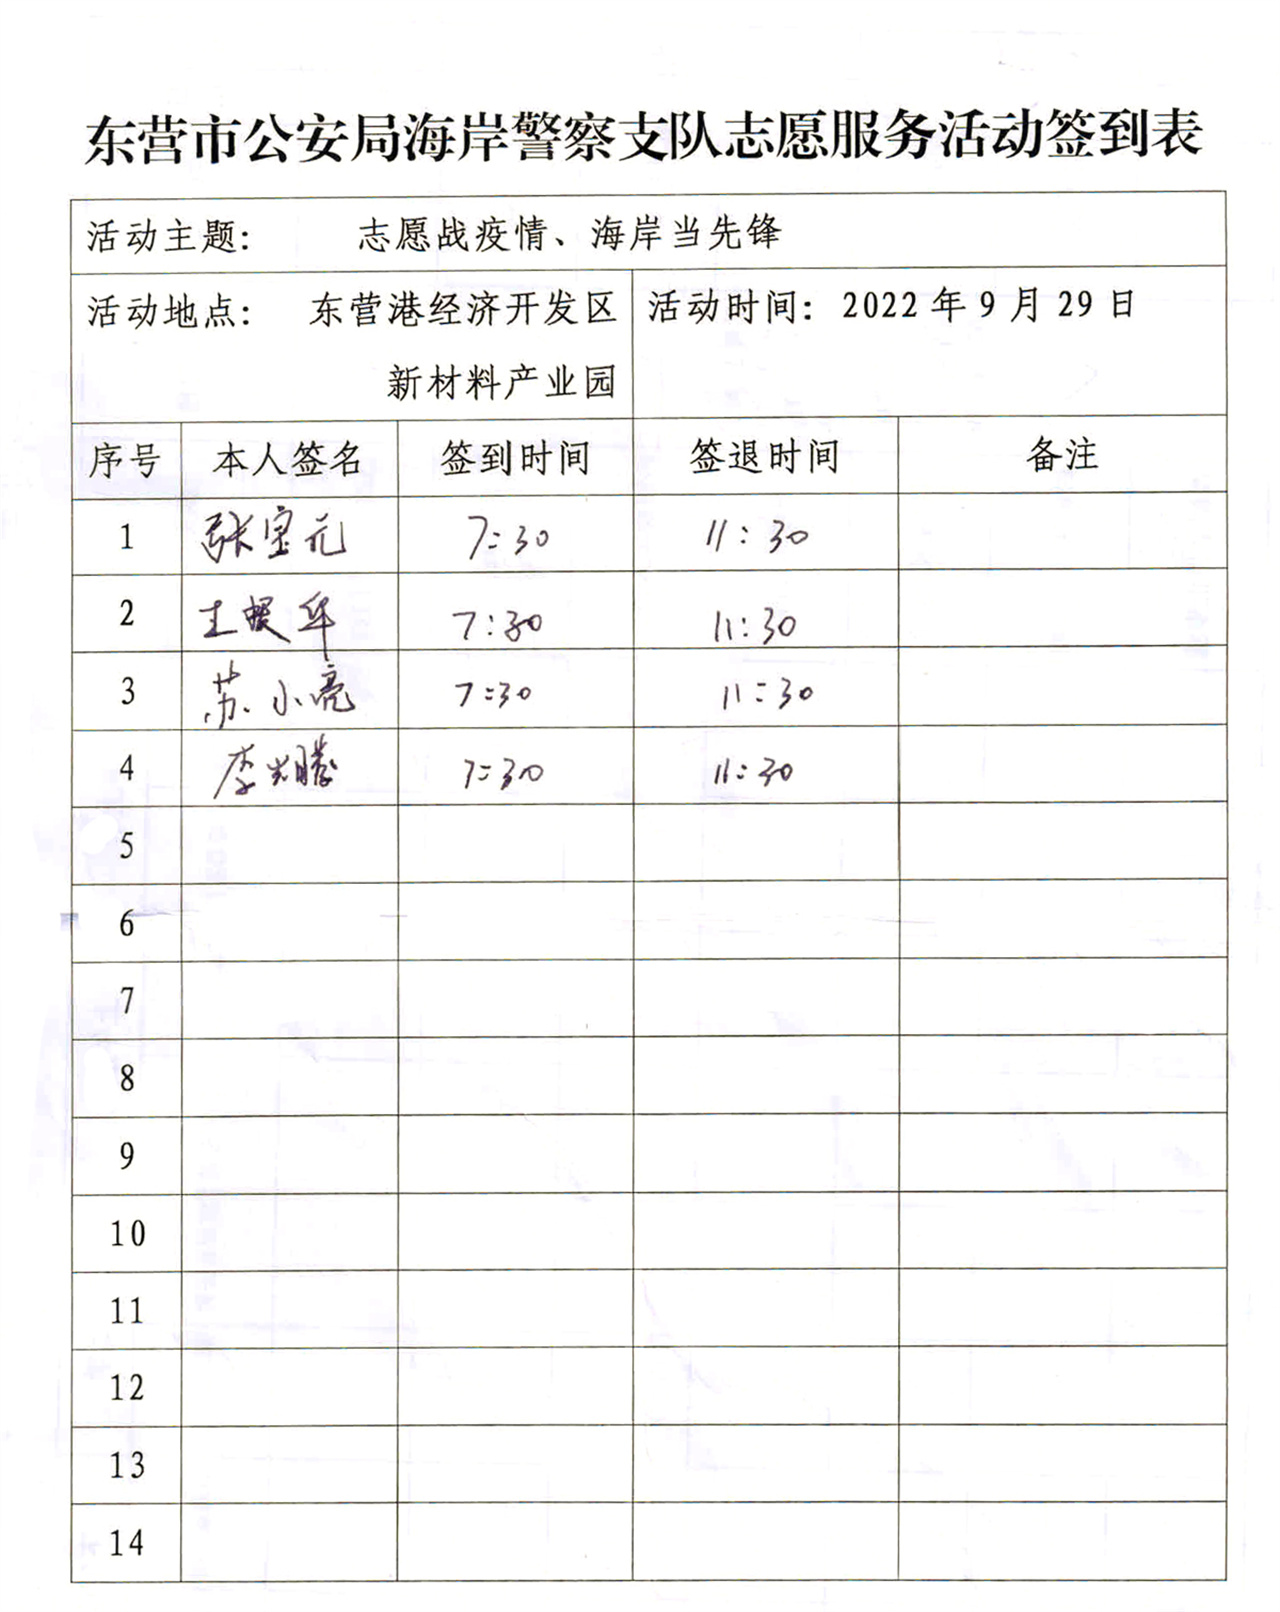 东营市公安局海岸警察支队志愿服务活动签到表
活动主题: 志愿战疫情、海岸当先锋
活动地点: 东营港经济开发区 活动时间: 2022年9月29日
新材料产业园
序号 本人签名 签到时间 签退时间 备注
1 张宝元 7:30 11:30
2 王 华 7:30 11:30
3 苏小亮 7:30 11:30
4 李光腾 7:30 11:30
5
6
7
8
9
10
11
12
13
14